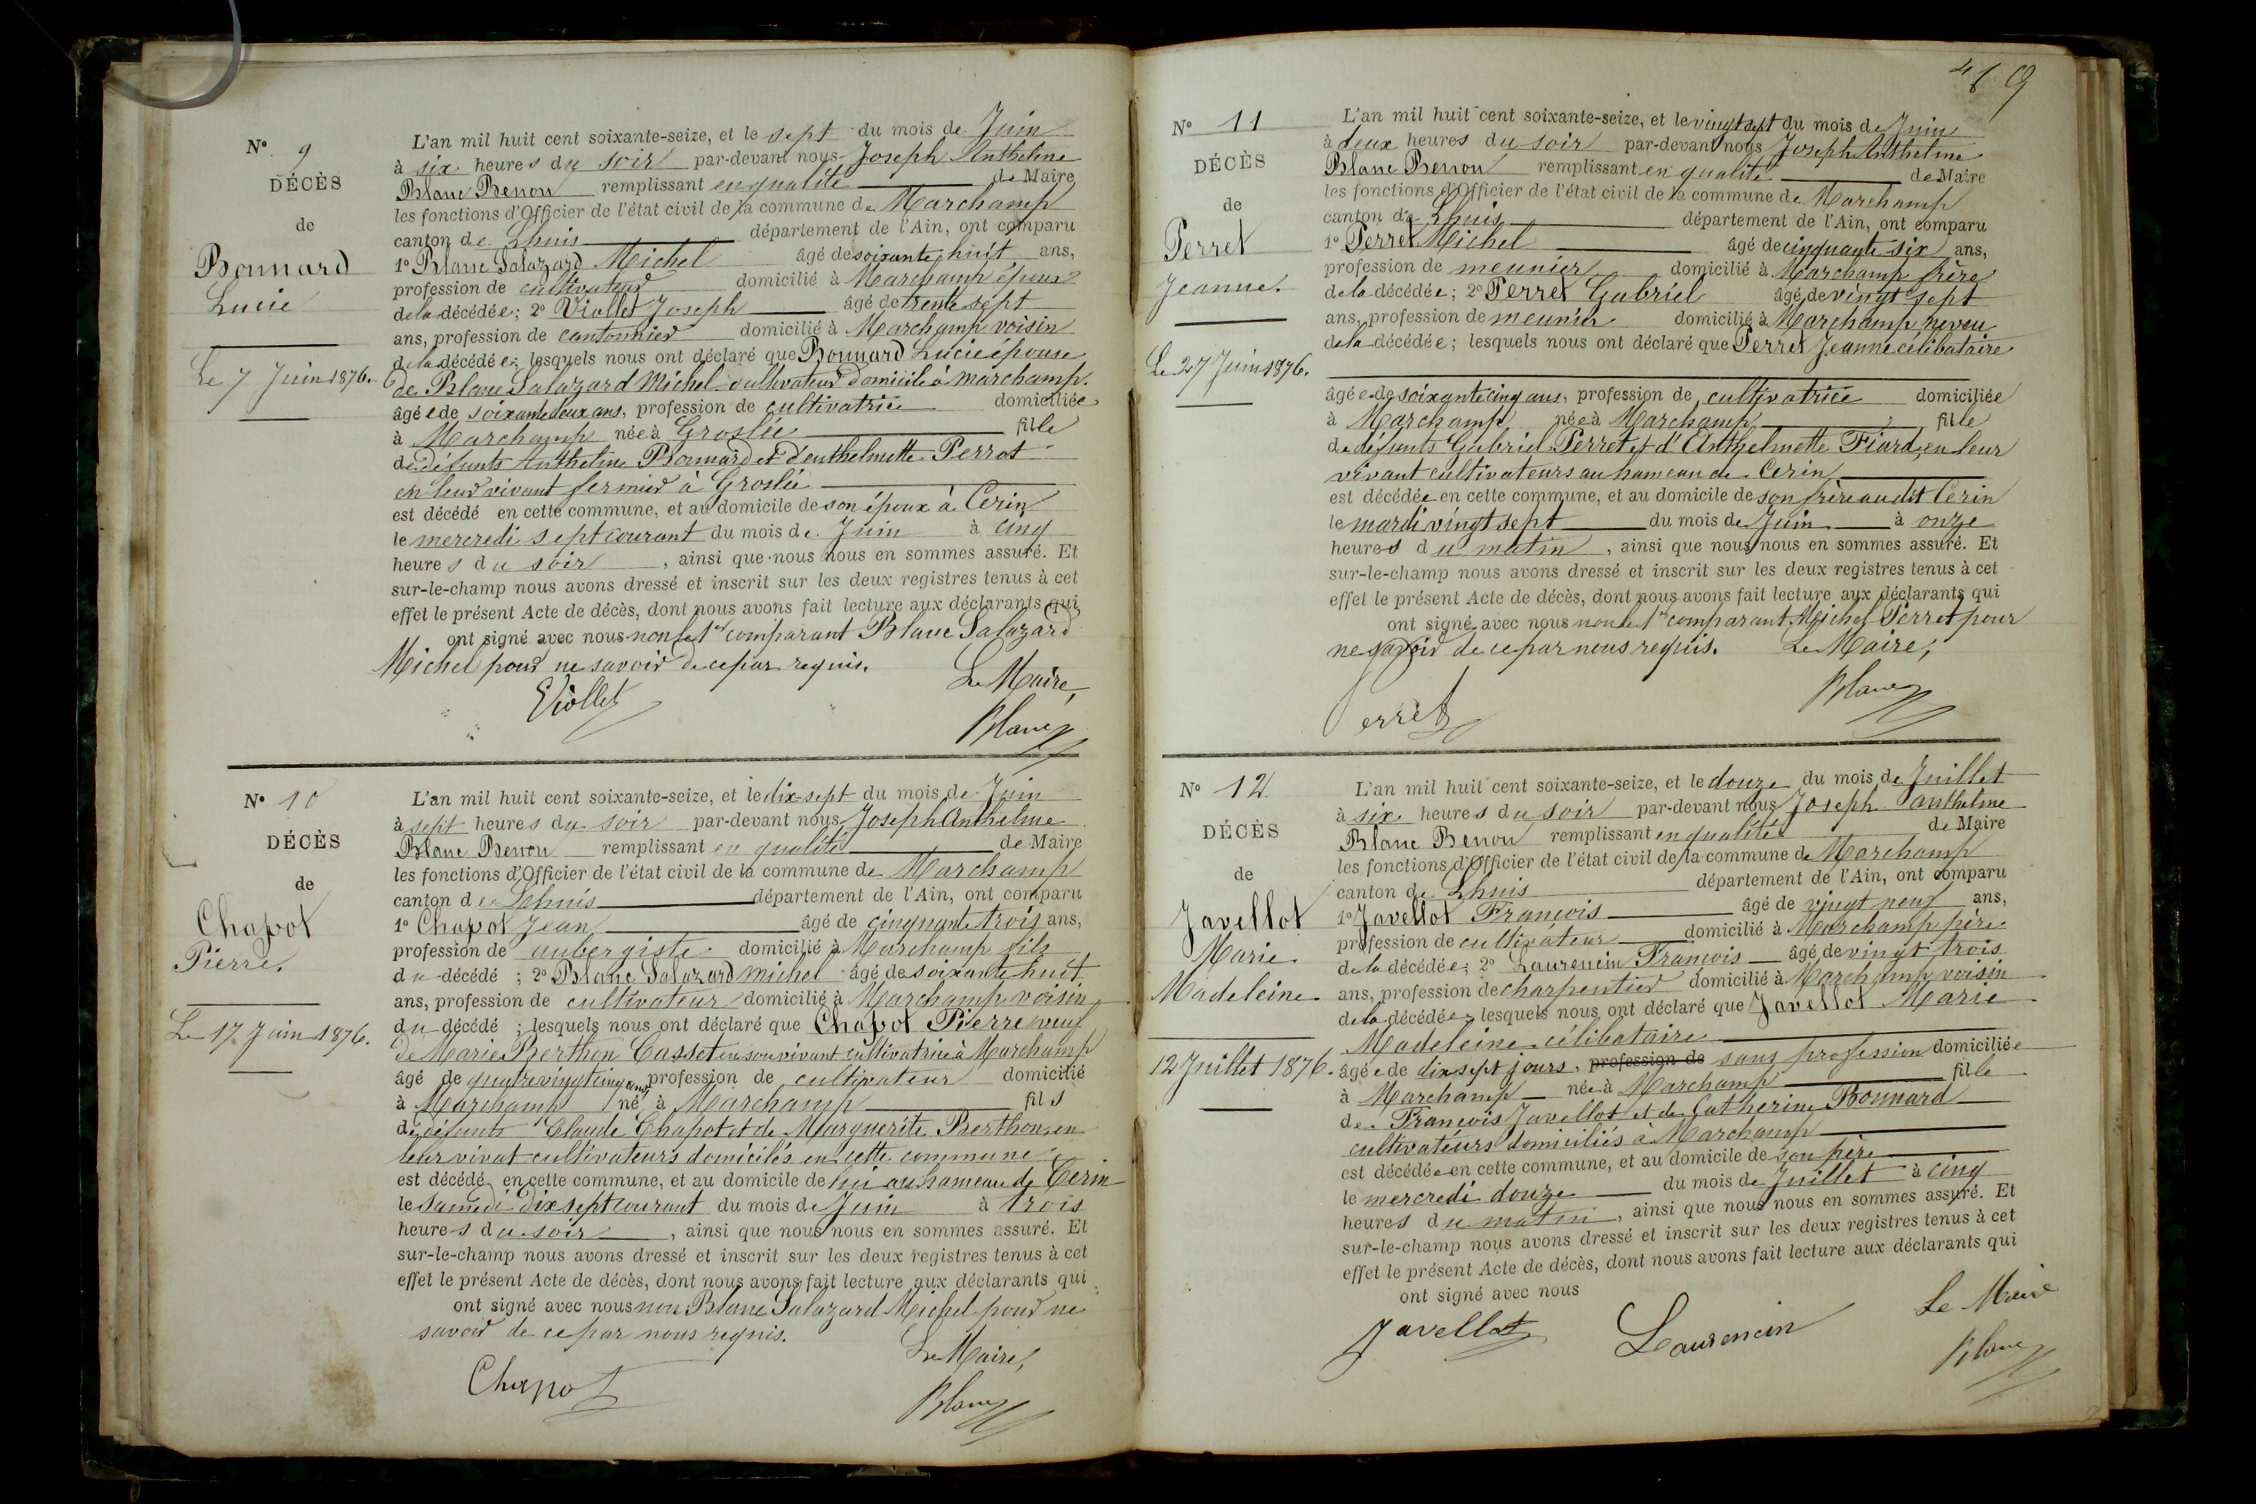 N° 9
DÉCÈS
de
Bonnard
Lucie
Le 7 Juin 1876.
L'an mil huit cent soixante-seize, et le sept du mois de Juin
à six heures du soir par-devant nous Joseph Anthelme
Blanc Benon remplissant en qualité de Maire
les fonctions d'Officier de l'état civil de la commune de Marchamp
canton de Lhuis département de l'Ain, ont comparu
1° Blanc Salazard Michel âgé de soixante huit ans,
profession de cultivateur domicilié à Marchamp époux
de la décédée; 2° Viollet Joseph âgé de trente sept
ans, profession de cantonnier domicilié à Marchamp voisin
de la décédée; lesquels nous ont déclaré que Bonnard Lucie épouse
de Blanc Salazard Michel cultivateur domicilié à Marchamp.
âgée de soixante deux ans, profession de cultivatrice domiciliée
à Marchamp née à Groslée fille
de défunts Anthelme Bonnard et d'enthelmette Perrot
en leur vivant fermier à Groslée
est décédé en cette commune, et au domicile de son époux à Cerin
le mercredi sept courant du mois de Juin à cinq
heures du soir, ainsi que nous nous en sommes assuré. Et
sur-le-champ nous avons dressé et inscrit sur les deux registres tenus à cet
effet le présent Acte de décès, dont nous avons fait lecture aux déclarants qui
ont signé avec nous non le 1er comparant Blanc Salazard
Michel pour ne savoir de ce par requis.
Le Maire,
Viollet
Blanc
N° 10
DÉCÈS
de
Chapot
Pierre.
Le 17 Juin 1876.
L'an mil huit cent soixante-seize, et le dix-sept du mois de Juin
à sept heures du soir par-devant nous Joseph Anthelme
Blanc Benon remplissant en qualité de Maire
les fonctions d'Officier de l'état civil de la commune de Marchamp
canton de Lhuis département de l'Ain, ont comparu
1° Chapot Jean âgé de cinquante trois ans,
profession de aubergiste domicilié à Marchamp fils
du décédé; 2° Blanc Salazard Michel âgé de soixante huit
ans, profession de cultivateur domicilié à Marchamp voisin
du décédé; lesquels nous ont déclaré que Chapot Pierre veuf
de Marie Berthon Casset en son vivant cultivatrice à Marchamp
âgé de quatre vingt cinq ans profession de cultivateur domicilié
à Marchamp né à Marchamp fils
de défunts Claude Chapot et de Marguerite Berthon en
leur vivat cultivateurs domicilés en cette commune
est décédé en cette commune, et au domicile de lui au hameau de Cerin
le samedi dix sept courant du mois de Juin à trois
heures du soir, ainsi que nous nous en sommes assuré. Et
sur-le-champ nous avons dressé et inscrit sur les deux registres tenus à cet
effet le présent Acte de décès, dont nous avons fait lecture aux déclarants qui
ont signé avec nous non Blanc Salazard Michel pour ne
savoir de ce par nous requis.
Le Maire,
Chapot
Blanc
N° 11
DÉCÈS
de
Perret
Jeanne.
Le 27 Juin 1876.
L'an mil huit cent soixante-seize, et le vingt sept du mois de Juin
à deux heures du soir par-devant nous Joseph Anthelme
Blanc Benon remplissant en qualité de Maire
les fonctions d'Officier de l'état civil de la commune de Marchamp
canton de Lhuis département de l'Ain, ont comparu
1° Perret Michel âgé de cinquante six ans,
profession de meunier domicilié à Marchamp frère
de la décédée; 2° Perret Gabriel âgé de vingt sept
ans, profession de meunier domicilié à Marchamp neveu
de la décédée; lesquels nous ont déclaré que Perret Jeanne célibataire
âgée de soixante cinq ans, profession de cultivatrice domiciliée
à Marchamp née à Marchamp fille
de défunts Gabriel Perret et d'Anthelmette Fiard, en leur
vivant cultivateurs au hameau de Cerin
est décédée en cette commune, et au domicile de son frère audit Cerin
le mardi vingt sept du mois de Juin à onze
heures du matin, ainsi que nous nous en sommes assuré. Et
sur-le-champ nous avons dressé et inscrit sur les deux registres tenus à cet
effet le présent Acte de décès, dont nous avons fait lecture aux déclarants qui
ont signé avec nous non le 1er comparant Michel Perret pour
ne savoir de ce par nous requis. Le Maire,
Perret
Blanc
N° 12
DÉCÈS
de
Javellot
Marie
Madeleine
12 Juillet 1876.
L'an mil huit cent soixante-seize, et le douze du mois de Juillet
à six heures du soir par-devant nous Joseph anthelme
Blanc Benon remplissant en qualité de Maire
les fonctions d'Officier de l'état civil de la commune de Marchamp
canton de Lhuis département de l'Ain, ont comparu
1° Javellot François âgé de vingt neuf ans,
profession de cultivateur domicilié à Marchamp père
de la décédée; 2° Laurencin François âgé de vingt trois
ans, profession de charpentier domicilié à Marchamp voisin
de la décédée; lesquels nous ont déclaré que Javellot Marie
Madeleine célibataire
âgée de dix sept jours, profession de sans profession domiciliée
à Marchamp née à Marchamp fille
de François Javellot et de Catherine Bonnard
cultivateurs domiciliés à Marchamp
est décédée en cette commune, et au domicile de son père
le mercredi douze du mois de Juillet à cinq
heures du matin, ainsi que nous nous en sommes assuré. Et
sur-le-champ nous avons dressé et inscrit sur les deux registres tenus à cet
effet le présent Acte de décès, dont nous avons fait lecture aux déclarants qui
ont signé avec nous
Le Maire
Javellot
Laurencin
Blanc